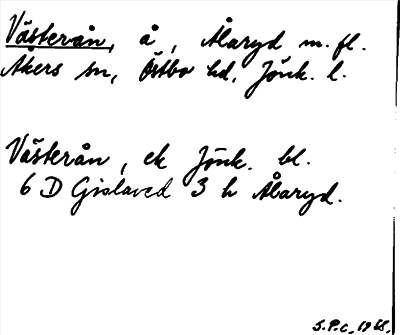 Västerån, å, Älaryd m. fl.
Åkers sn, Östbo hd, Jönk. l.
Västerån, ek Jönk. bl.
6 D Gislaved 3 h Ålaryd.
S.P.C. 1968.